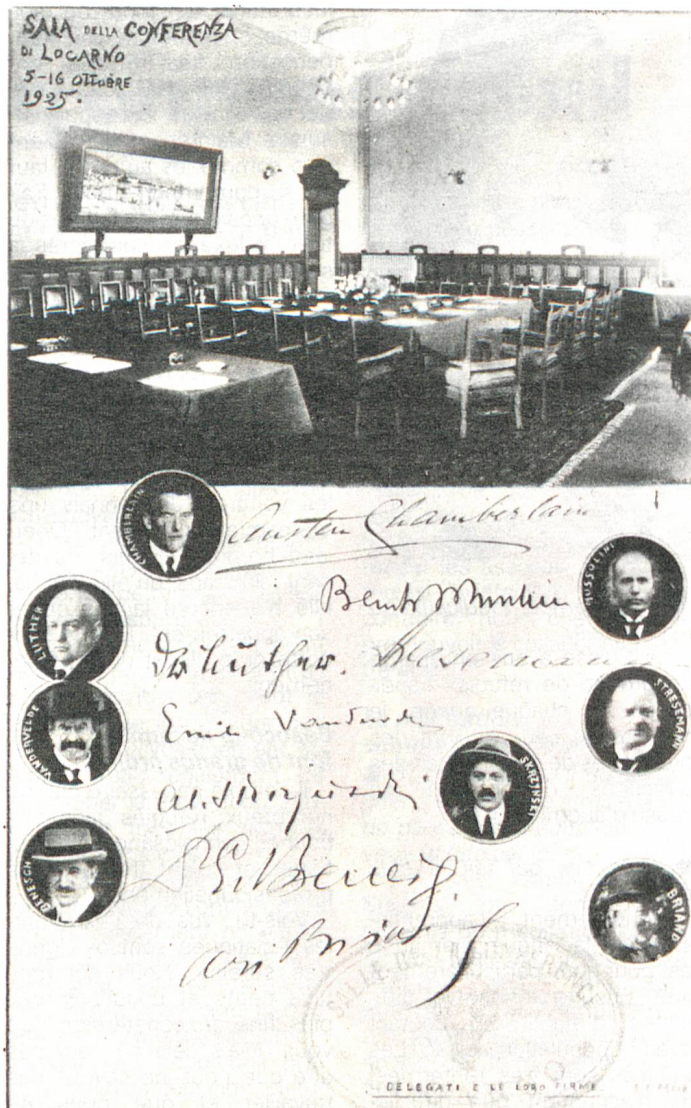 SALA DELLA CONFERENZA
DI LOCARNO
5-16 OTTOBRE
1925.
CHAMBERLAIN
Austen Chamberlain
MUSSOLINI
LUTHER
Dr Luther. Stresemann
STRESEMANN
VANDERVELDE
Emile Vandervelde
SKRZYNSKI
Al. Skrzynski
BENESCH
Dr. E. Beneš
BRIAND
Ari Briand
SALLE DE LA CONFERENCE
DELEGATI E LE LORO FIRME